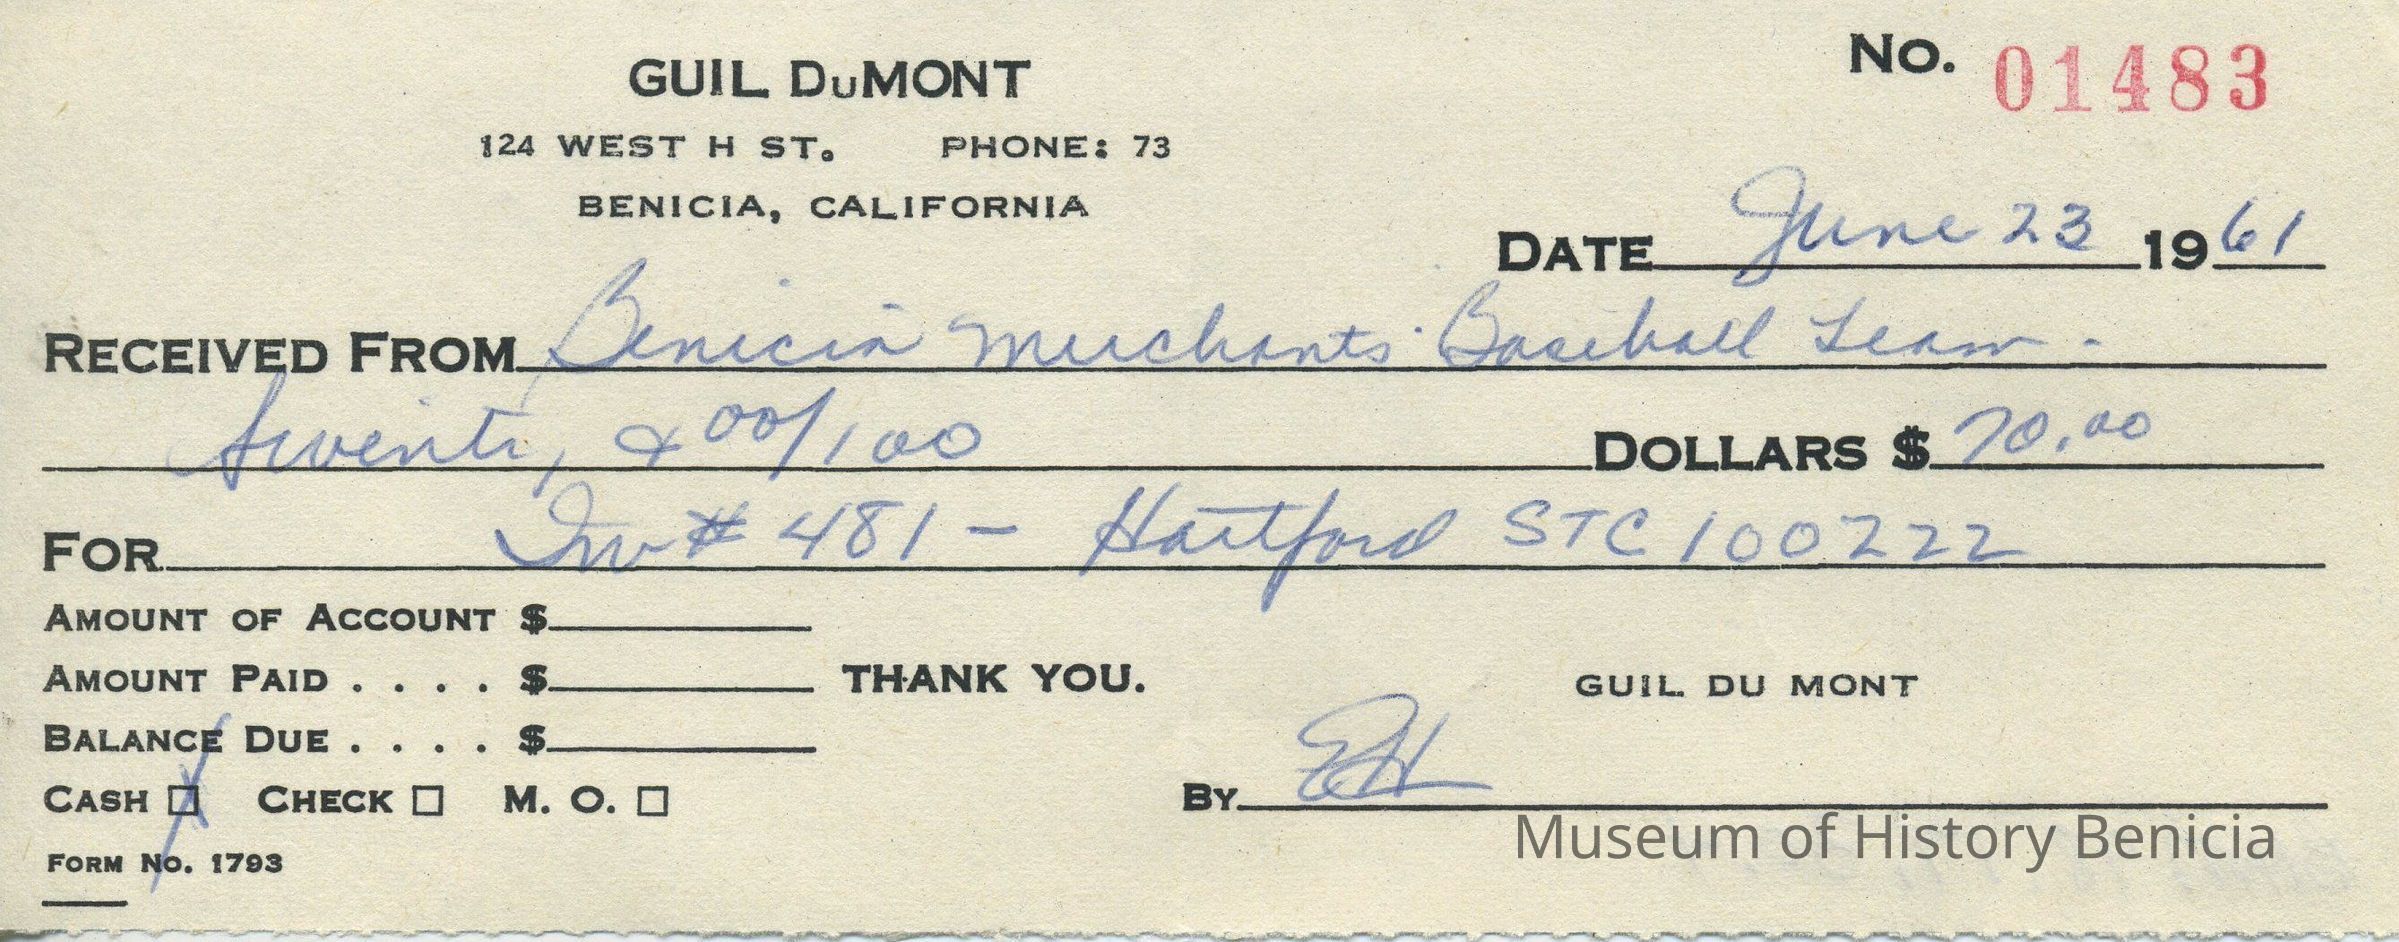 GUIL DuMONT
No. 01483
124 WEST H ST. PHONE: 73
BENICIA, CALIFORNIA
DATE June 23 1961
RECEIVED FROM Benicia Merchants Baseball Team.
Seventy & 00/100 DOLLARS $ 70.00
FOR Inv # 481 - Hartford STC 100222
AMOUNT OF ACCOUNT $
AMOUNT PAID . . . . $ THANK YOU. GUIL DU MONT
BALANCE DUE . . . . $
CASH ☐ CHECK ☐ M. O. ☐ BY EH
Museum of History Benicia
FORM NO. 1793